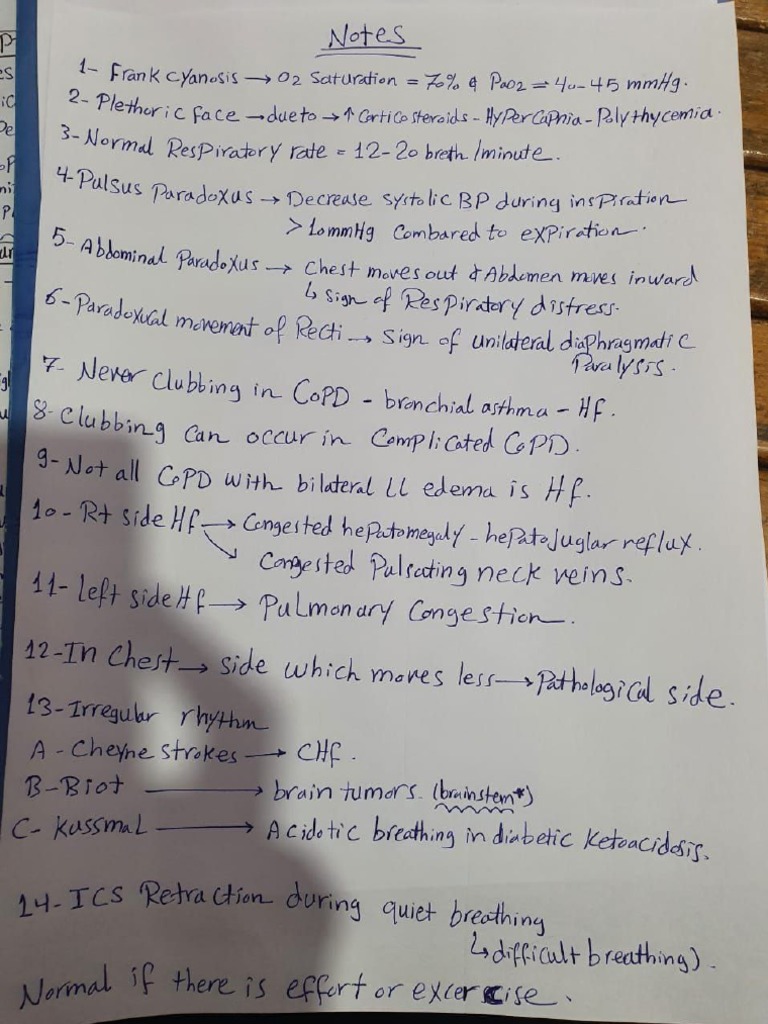 Notes
1- Frank cyanosis → O2 Saturation = 70% & PaO2 = 40-45 mmHg.
2- Plethoric face → due to → ↑ Corticosteroids - HyPerCaPnia - Polythycemia.
3- Normal ResPiratory rate = 12-20 breth /minute.
4- Pulsus Paradoxus → Decrease systolic BP during insPiration
> 10mmHg Combared to exPiration.
5- Abdominal Paradoxus → Chest moves out & Abdomen moves inward
↳ Sign of ResPiratory distress.
6- Paradoxural movement of Recti → Sign of unilateral diaphragmatic
Paralysis.
7- Never Clubbing in COPD - bronchial asthma - Hf.
8- Clubbing can occur in Complicated COPD.
9- Not all COPD with bilateral LL edema is Hf.
10- Rt side Hf → Congested hePatomegaly - hePatojuglar reflux.
↘ Congested Pulsating neck veins.
11- Left side Hf → Pulmonary Congestion.
12- In Chest → side which moves less → Pathological side.
13- Irregular rhythm
A - Cheyne strokes → CHf.
B- Biot → brain tumors. (brainstem*)
C- Kussmal → Acidotic breathing in diabetic Ketoacidosis.
14- ICS Retraction during quiet breathing
↳ difficult breathing).
Normal if there is effort or excercise.